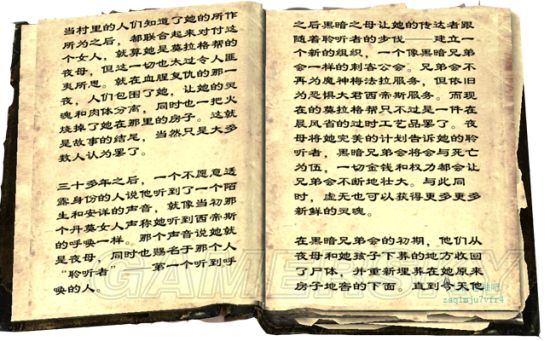 当村里的人们知道了她的所作
所为之后，都联合起来对付这
个女人，就算她是莫拉格帮的
夜母，但这一切也太过令人匪
夷所思。就在血腥复仇的那一
夜，人们包围了她，让她的灵
魂和肉体分离，同时也一把火
烧掉了她在那里的房子。这就
是故事的结尾，当然只是大多
数人认为罢了。
三十多年之后，一个不愿意透
露身份的人说他听到了一个陌
生和安详的声音，就像当初那
个丹莫女人声称她听到西帝斯
的呼唤一样。那个声音说她就
是夜母，同时也赐名于那个人
“聆听者”——第一个听到呼
唤的人。
之后黑暗之母让她的传达者跟
随着聆听者的步伐——建立一
个新的组织，一个像黑暗兄弟
会一样的刺客公会。兄弟会不
再为魔神梅法拉服务，但依旧
为恐惧大君西帝斯服务。而现
在的莫拉格帮只不过是一件在
晨风省的过时工艺品罢了。夜
母将她完美的计划告诉她的聆
听者，黑暗兄弟会将会与死亡
为伍，一切金钱和权力都会让
兄弟会不断地壮大。与此同
时，虚无也可以获得更多更多
新鲜的灵魂。
在黑暗兄弟会的初期，他们从
夜母和她孩子下葬的地方收回
了尸体，并重新埋葬在她原来
房子地窖的下面。直到今天他
GAMERSKY
zaqimju7vfr4